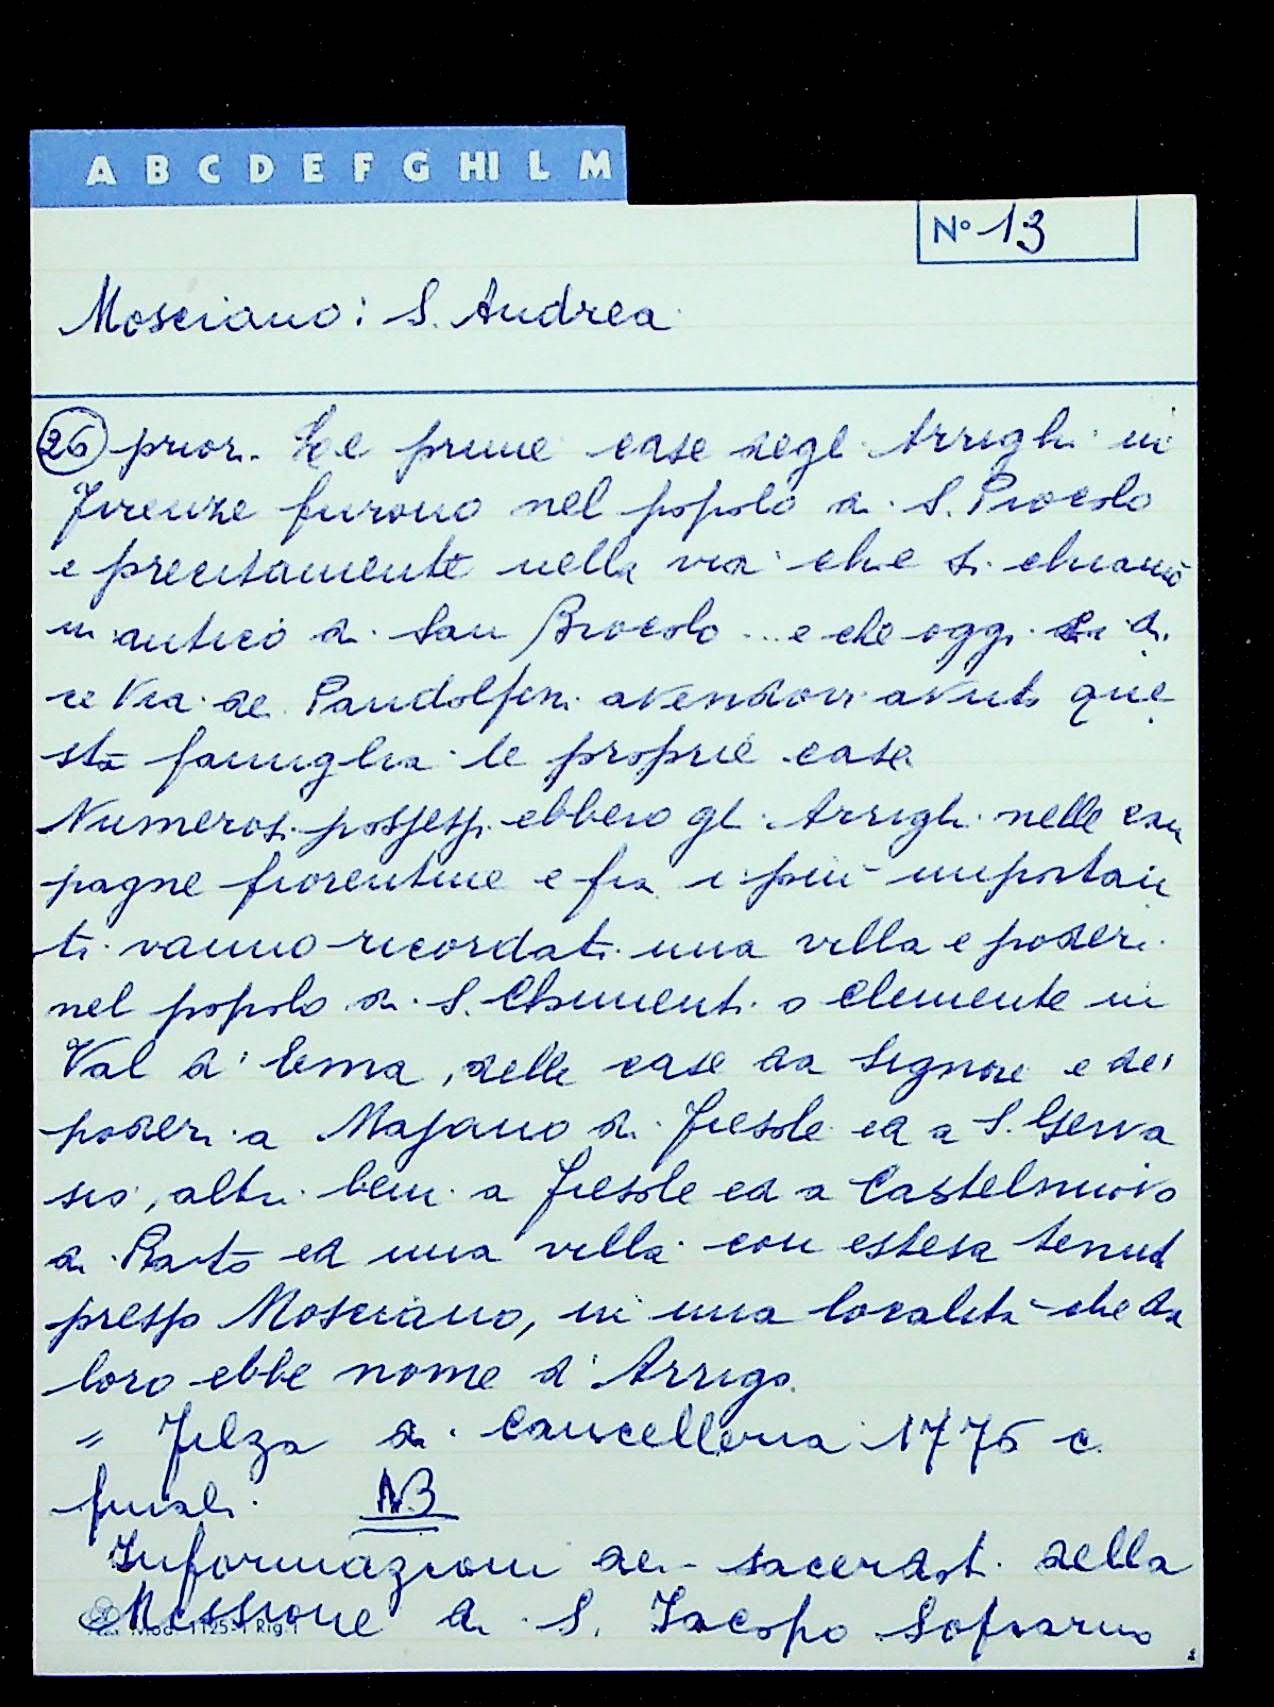 A B C D E F G HI L M
Nº 13
Mosciano: S. Andrea
26 priori. Le prime case degli Arrighi in
Firenze furono nel popolo di S. Procolo
e precisamente nella via che si chiamò
in antico di San Procolo... e che oggi si di
ce Via de' Pandolfini avendovi avuto que
sta famiglia le proprie case
Numerosi possessi ebbero gli Arrighi nelle cam
pagne fiorentine e fra i più importan
ti vanno ricordati una villa e poderi
nel popolo di S. Chimenti o Clemente in
Val d'Ema, delle case da signore e dei
poderi a Majano di Fiesole ed a S. Gerva
sio, altri beni a Fiesole ed a Castelnuovo
di Prato ed una villa con estesa tenut
presso Mosciano, in una località che da
loro ebbe nome d'Arrigo.
" Filza di Cancelleria 1776 c.
finali. NB
Informazioni dei sacerdoti della
Missione di S. Jacopo Soprarno
Mod. 1125-1 Rig. 1